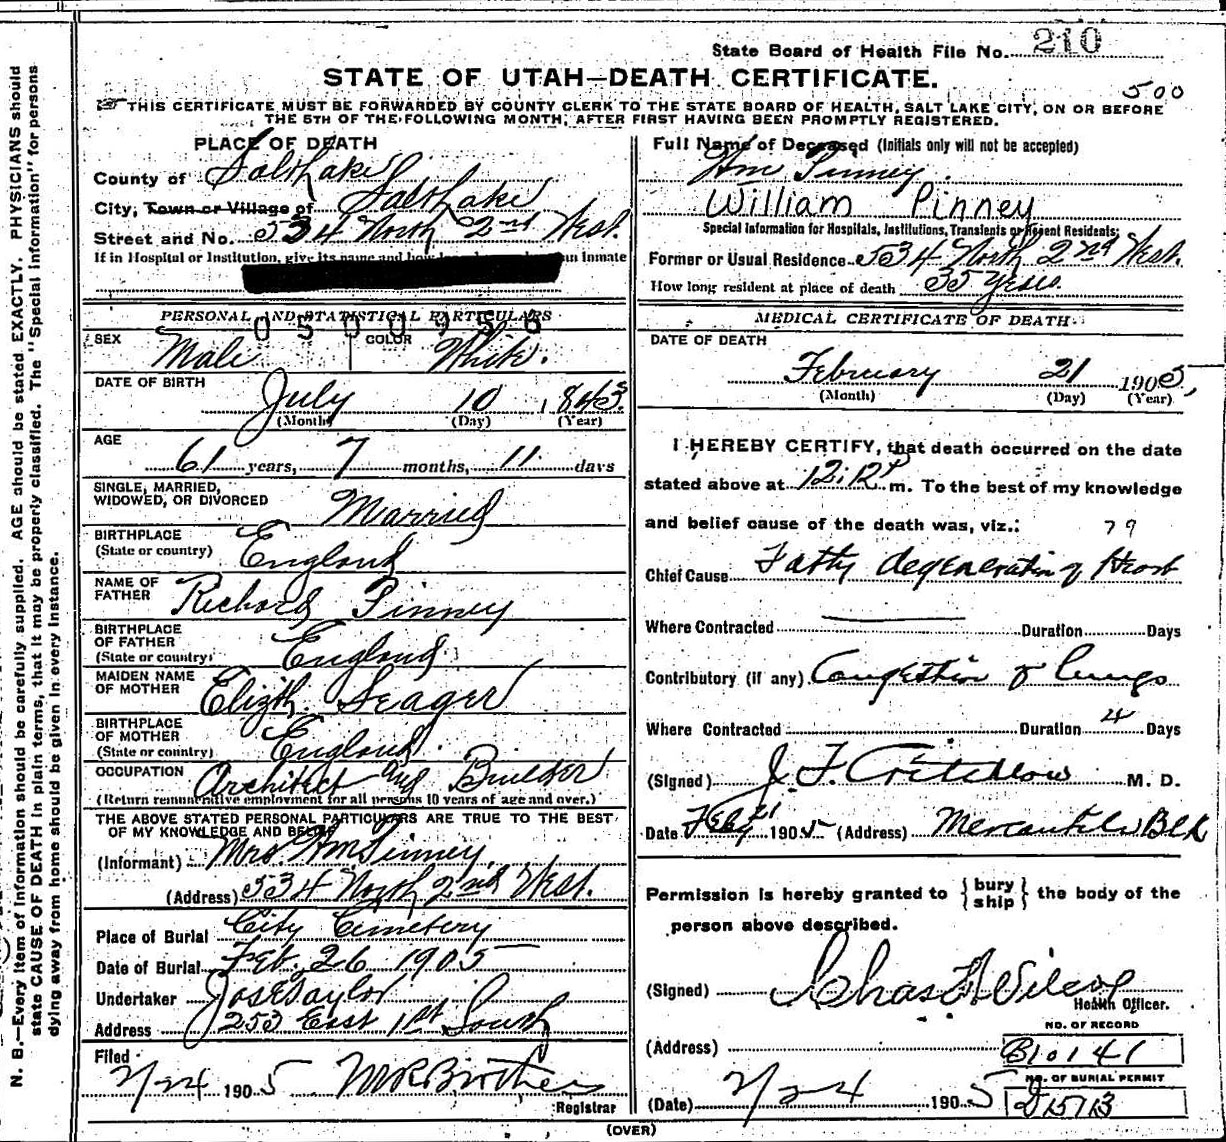 State Board of Health File No. 210
STATE OF UTAH—DEATH CERTIFICATE.
500
THIS CERTIFICATE MUST BE FORWARDED BY COUNTY CLERK TO THE STATE BOARD OF HEALTH, SALT LAKE CITY, ON OR BEFORE
THE 5TH OF THE FOLLOWING MONTH, AFTER FIRST HAVING BEEN PROMPTLY REGISTERED.
N. B.—Every item of information should be carefully supplied. AGE should be stated EXACTLY. PHYSICIANS should
state CAUSE OF DEATH in plain terms, that it may be properly classified. The "Special Information" for persons
dying away from home should be given in every instance.
PLACE OF DEATH
County of Salt Lake
City, Town or Village of Salt Lake
Street and No. 534 North 2nd West.
If in Hospital or Institution, give its name and how an inmate
PERSONAL AND STATISTICAL PARTICULARS
0500956
SEX Male COLOR White.
DATE OF BIRTH
July 10, 1843.
(Month) (Day) (Year)
AGE
61 years, 7 months, 11 days
SINGLE, MARRIED,
WIDOWED, OR DIVORCED Married
BIRTHPLACE
(State or country) England
NAME OF
FATHER Richard Pinney
BIRTHPLACE
OF FATHER
(State or country) England
MAIDEN NAME
OF MOTHER Elizth. Seager
BIRTHPLACE
OF MOTHER
(State or country) England.
OCCUPATION Architect and Builder
(Return remunerative employment for all persons 10 years of age and over.)
THE ABOVE STATED PERSONAL PARTICULARS ARE TRUE TO THE BEST
OF MY KNOWLEDGE AND BELIEF
(Informant) Mrs Wm Pinney,
(Address) 534 North 2nd West.
Place of Burial City Cemetery
Date of Burial Feb. 26 1905
Undertaker Jos E Taylor
Address 253 East 1st South
Filed
2/24 1905
Registrar
Full Name of Deceased (Initials only will not be accepted)
Wm Pinney.
William Pinney
Special Information for Hospitals, Institutions, Transients or Recent Residents:
Former or Usual Residence 534 North 2nd West.
How long resident at place of death 35 Years.
MEDICAL CERTIFICATE OF DEATH
DATE OF DEATH
February 21 1905,
(Month) (Day) (Year)
I HEREBY CERTIFY, that death occurred on the date
stated above at 12:12 P m. To the best of my knowledge
and belief cause of the death was, viz.: 79
Chief Cause Fatty degeneration of Heart
Where Contracted Duration Days
Contributory (if any) Congestion of lungs
Where Contracted Duration 4 Days
(Signed) J. F. Critchlow M. D.
Date Feby 21 1905 (Address) Mercantile Blk
Permission is hereby granted to { bury
ship } the body of the
person above described.
(Signed) Chas F Wilcox
Health Officer.
NO. OF RECORD
(Address) B10141
NO. OF BURIAL PERMIT
(Date) 2/24 1905
(OVER)